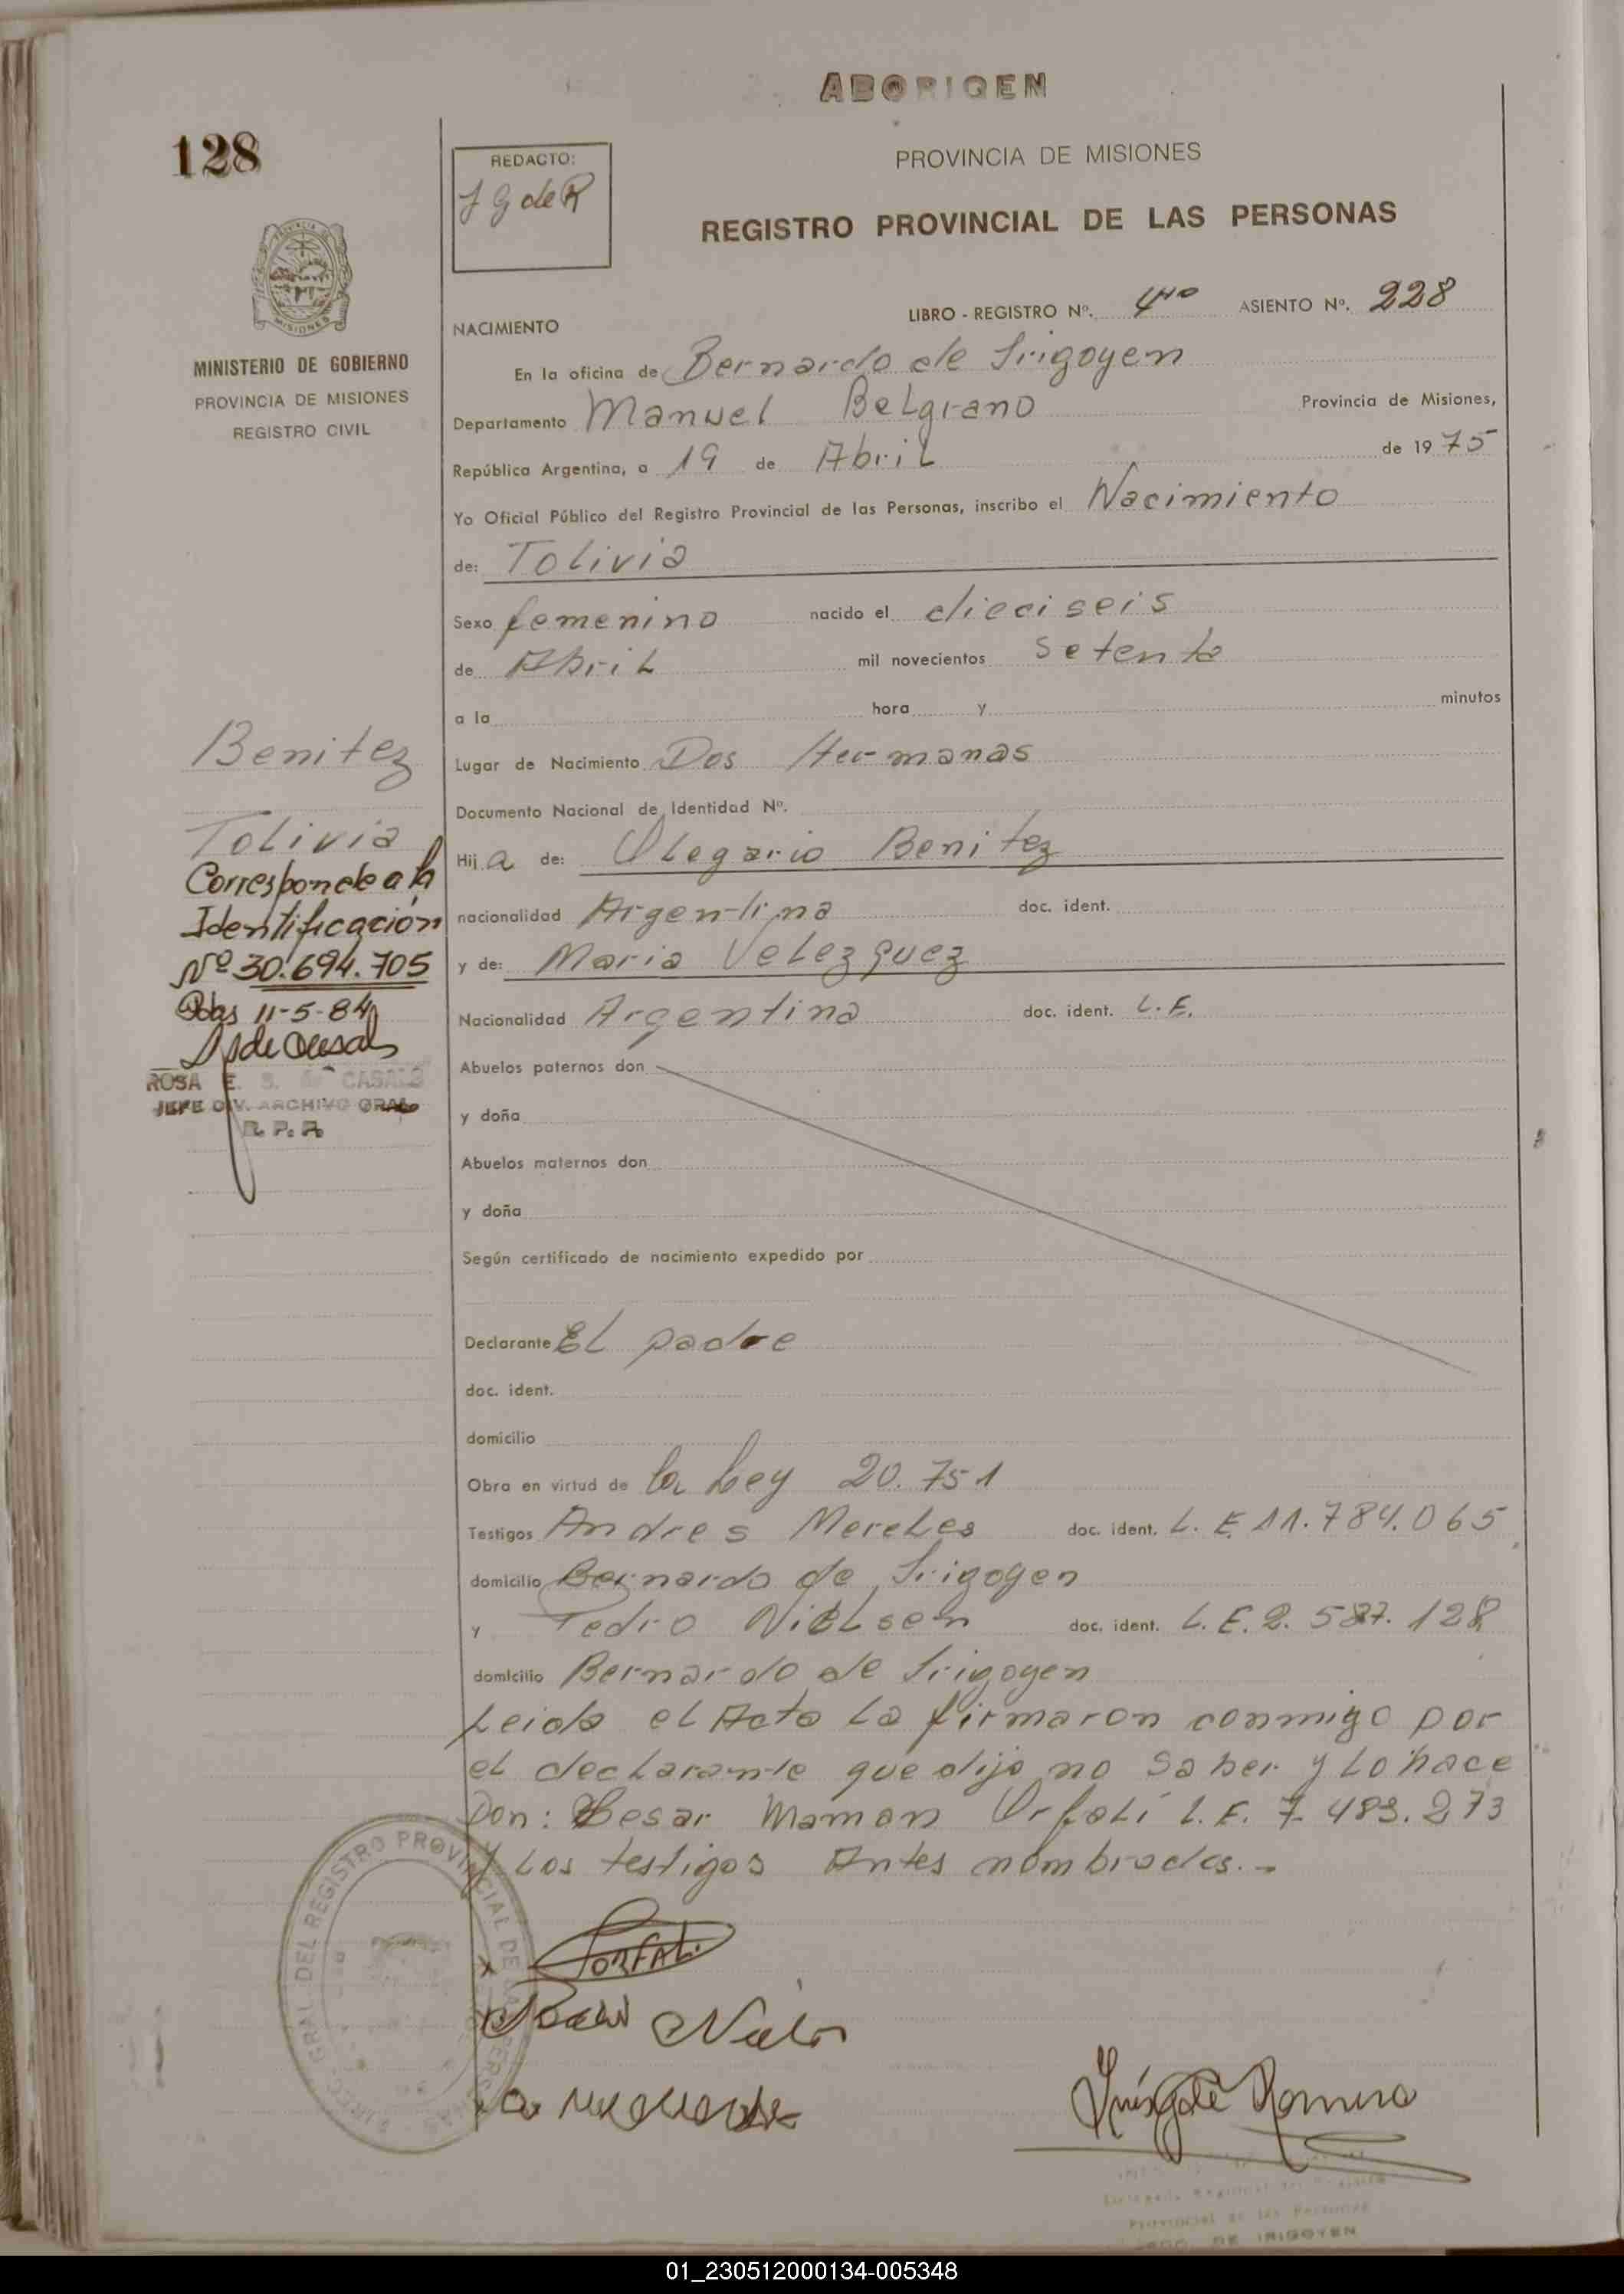 ABORIGEN
128
REDACTO:
J G de R
PROVINCIA DE MISIONES
REGISTRO PROVINCIAL DE LAS PERSONAS
MISIONES
MINISTERIO DE GOBIERNO
PROVINCIA DE MISIONES
REGISTRO CIVIL
LIBRO - REGISTRO Nº. 4to ASIENTO Nº. 228
NACIMIENTO
En la oficina de Bernardo de Irigoyen
Departamento Manuel Belgrano Provincia de Misiones,
República Argentina, a 19 de Abril de 1975
Yo Oficial Público del Registro Provincial de las Personas, inscribo el Nacimiento
de: Tolivia
Sexo femenino nacido el dieciseis
de Abril mil novecientos setenta
a la hora y minutos
Lugar de Nacimiento Dos Hermanas
Documento Nacional de Identidad Nº.
Hija de: Olegario Benitez
nacionalidad Argentina doc. ident.
y de: Maria Velezquez
Nacionalidad Argentina doc. ident. L.E.
Abuelos paternos don
y doña
Abuelos maternos don
y doña
Según certificado de nacimiento expedido por
Declarante El padre
doc. ident.
domicilio
Obra en virtud de la Ley 20.751
Testigos Andres Mereles doc. ident. L.E. 11.784.065
domicilio Bernardo de Irigoyen
y Pedro Nielsen doc. ident. L.E. 2.587.128
domicilio Bernardo de Irigoyen
Leida el Acta la firmaron conmigo por
el declarante que dijo no saber y lo hace
Don: Cesar Maman Orfali L.E. 7.483.273
y los testigos Antes nombrados.-
Benitez
Tolivia
Corresponde a la
Identificación
Nº 30.694.705
Pdas 11-5-84
ROSA E. S. de CASALS
JEFE DIV. ARCHIVO GRAL
R. P. P.
DIREC. GRAL. DEL REGISTRO PROVINCIAL DE LAS PERSONAS
ORFALI
Romero
Provincial de las Personas
BDO. DE IRIGOYEN
01_230512000134-005348